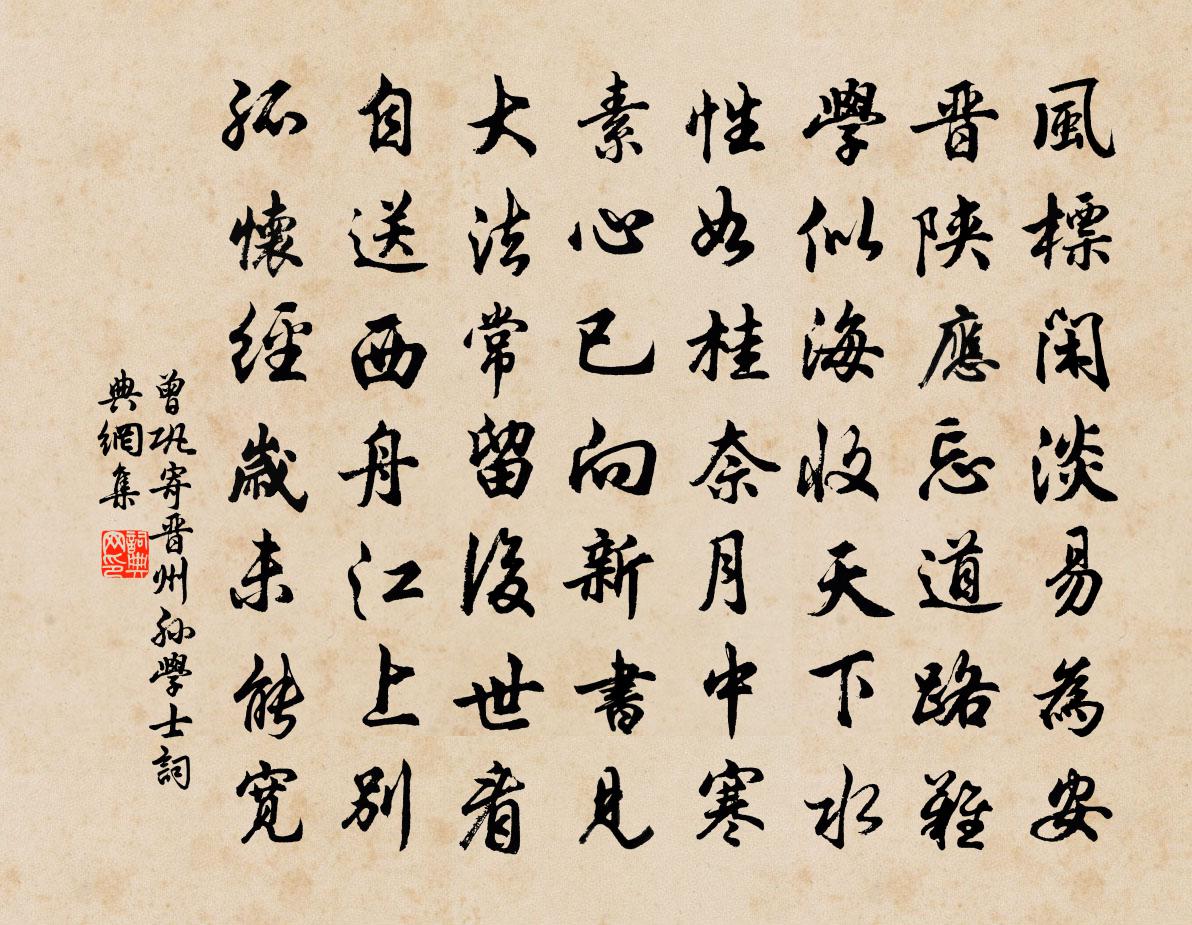 風標閑淡易為安
晋陝應忘道路難
學似海收天下水
性如桂奈月中寒
素心已向新書見
大法常留後世看
自送西舟江上別
孤懷經歲未能寬
曾巩寄晋州孙學士詞
典網集
詞典
网印